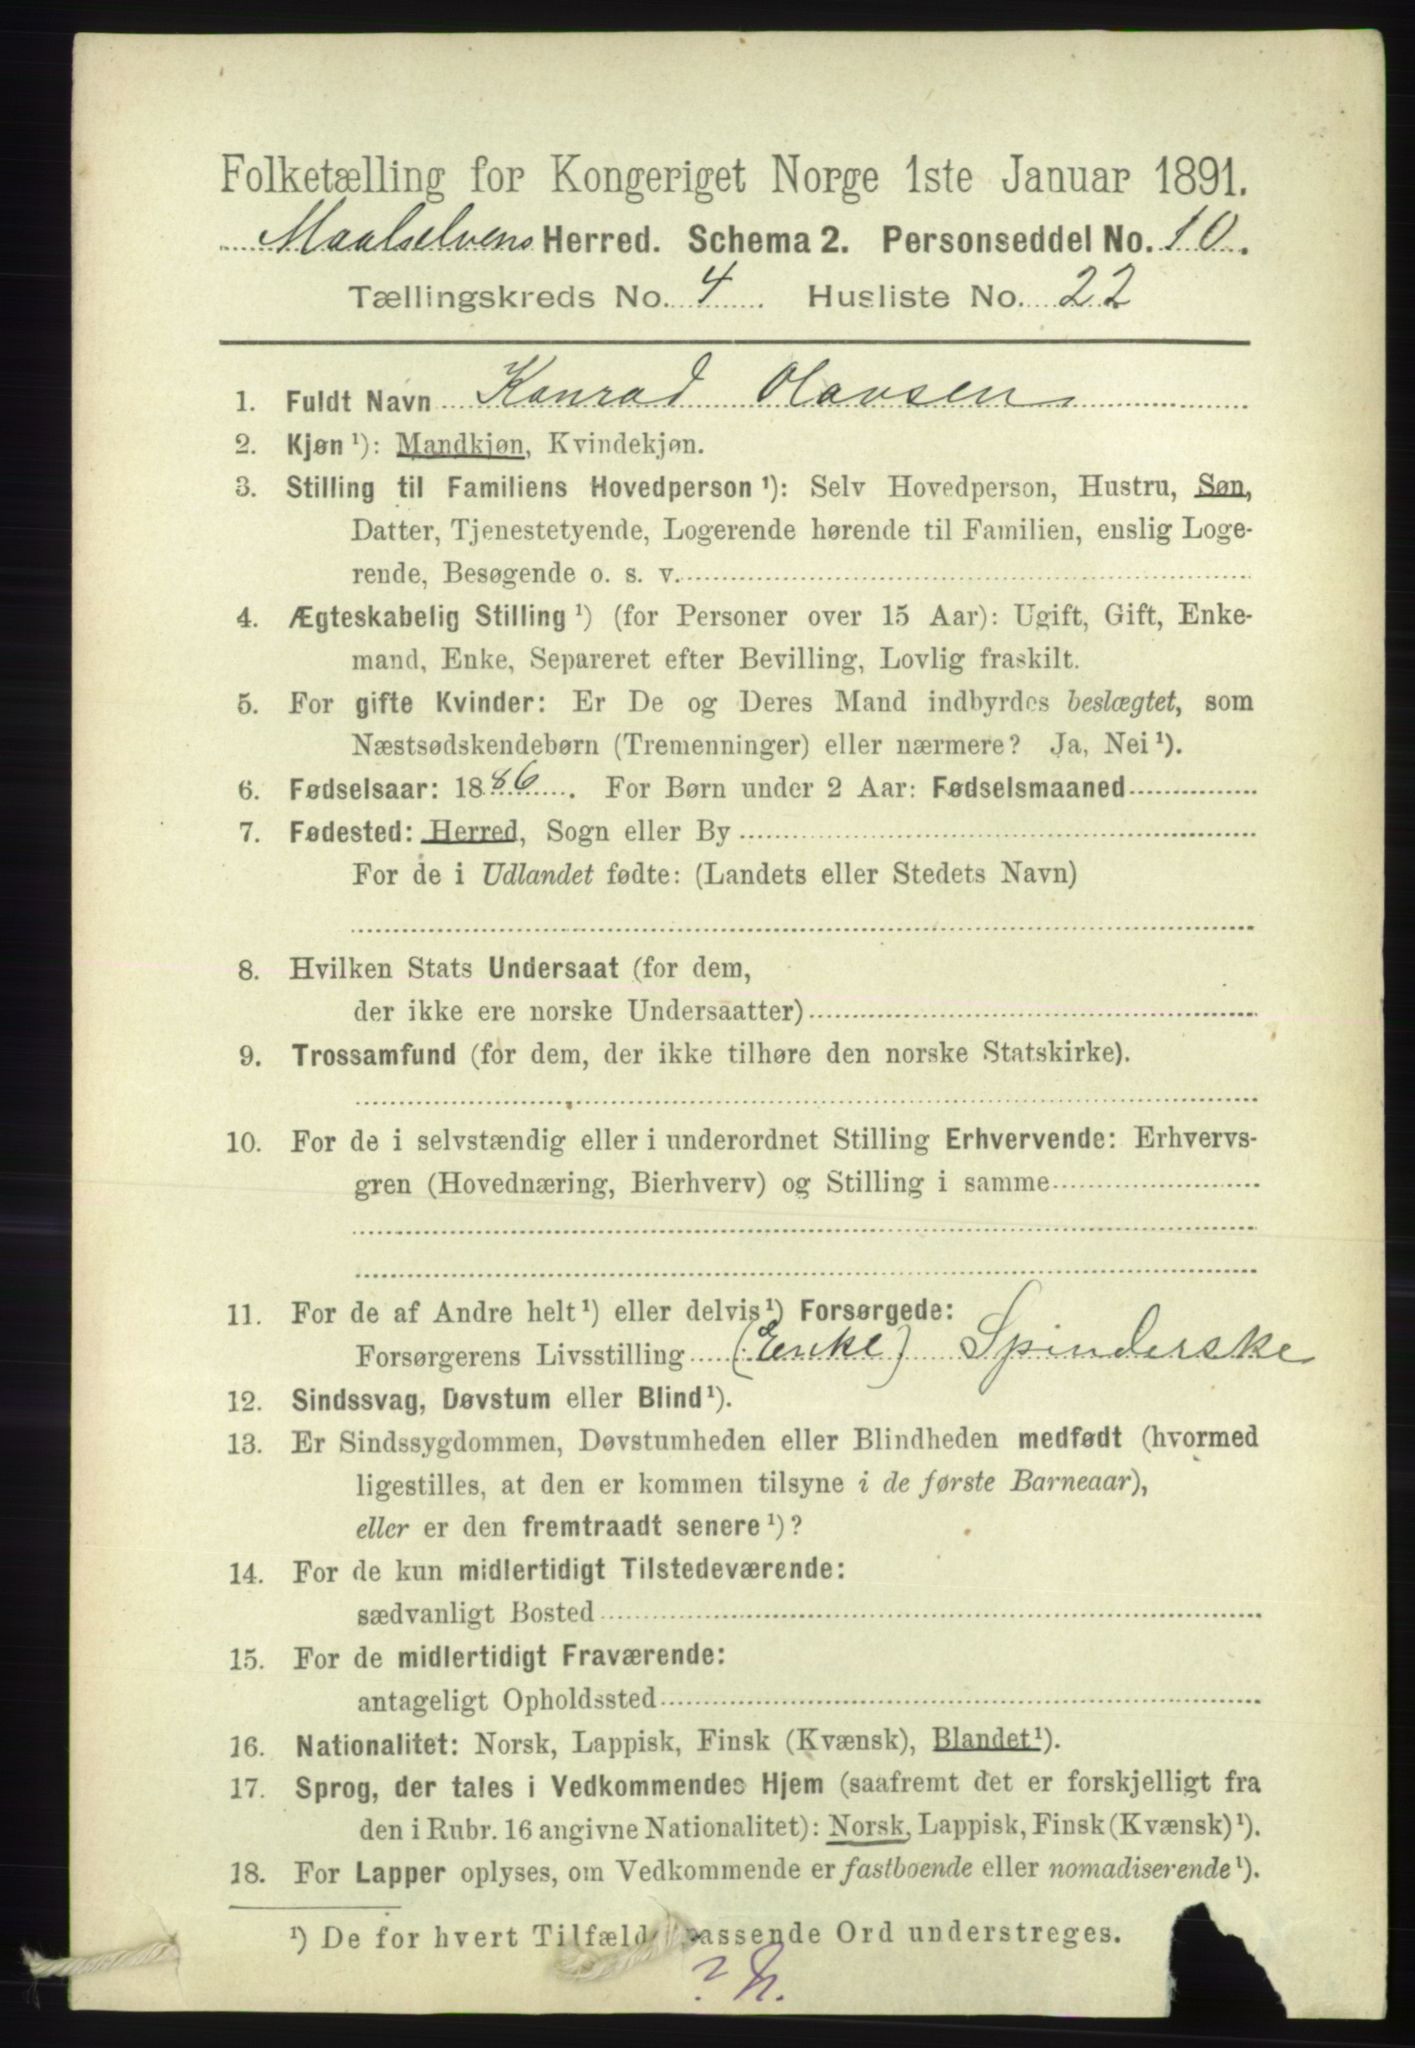 Folketælling for Kongeriget Norge 1ste Januar 1891.
Maalselvens Herred. Schema 2. Personseddel No. 10.
Tællingskreds No. 4 Husliste No. 22
1. Fuldt Navn Konrad Olavsen
2. Kjøn ¹): Mandkjøn, Kvindekjøn.
3. Stilling til Familiens Hovedperson ¹): Selv Hovedperson, Hustru, Søn,
Datter, Tjenestetyende, Logerende hørende til Familien, enslig Loge-
rende, Besøgende o. s. v.
4. Ægteskabelig Stilling ¹) (for Personer over 15 Aar): Ugift, Gift, Enke-
mand, Enke, Separeret efter Bevilling, Lovlig fraskilt.
5. For gifte Kvinder: Er De og Deres Mand indbyrdes beslægtet, som
Næstsødskendebørn (Tremenninger) eller nærmere? Ja, Nei ¹).
6. Fødselsaar: 1886. For Børn under 2 Aar: Fødselsmaaned
7. Fødested: Herred, Sogn eller By
For de i Udlandet fødte: (Landets eller Stedets Navn)
8. Hvilken Stats Undersaat (for dem,
der ikke ere norske Undersaatter)
9. Trossamfund (for dem, der ikke tilhøre den norske Statskirke).
10. For de i selvstændig eller i underordnet Stilling Erhvervende: Erhvervs-
gren (Hovednæring, Bierhverv) og Stilling i samme
11. For de af Andre helt ¹) eller delvis ¹) Forsørgede:
Forsørgerens Livsstilling (Enke) Spinderske
12. Sindssvag, Døvstum eller Blind ¹).
13. Er Sindssygdommen, Døvstumheden eller Blindheden medfødt (hvormed
ligestilles, at den er kommen tilsyne i de første Barneaar),
eller er den fremtraadt senere ¹)?
14. For de kun midlertidigt Tilstedeværende:
sædvanligt Bosted
15. For de midlertidigt Fraværende:
antageligt Opholdssted
16. Nationalitet: Norsk, Lappisk, Finsk (Kvænsk), Blandet ¹).
17. Sprog, der tales i Vedkommendes Hjem (saafremt det er forskjelligt fra
den i Rubr. 16 angivne Nationalitet): Norsk, Lappisk, Finsk (Kvænsk) ¹).
18. For Lapper oplyses, om Vedkommende er fastboende eller nomadiserende ¹).
¹) De for hvert Tilfælde passende Ord understreges.